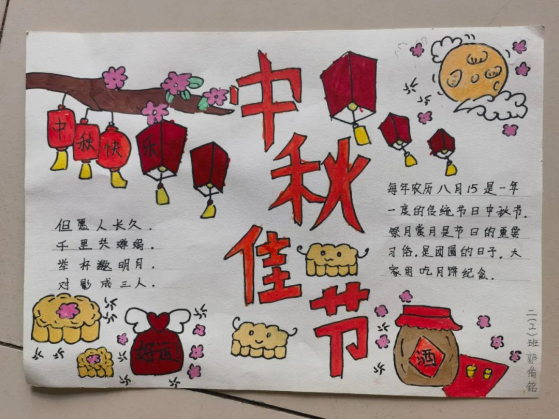 中秋佳节
中秋快乐
但愿人长久.
千里共婵娟.
举杯邀明月.
对影成三人.
每年农历八月15是一年
一度的传统节日中秋节.
祭月赏月是节日的重要
习俗.是团圆的日子.大
家用吃月饼纪念.
好运
酒
二(2)班